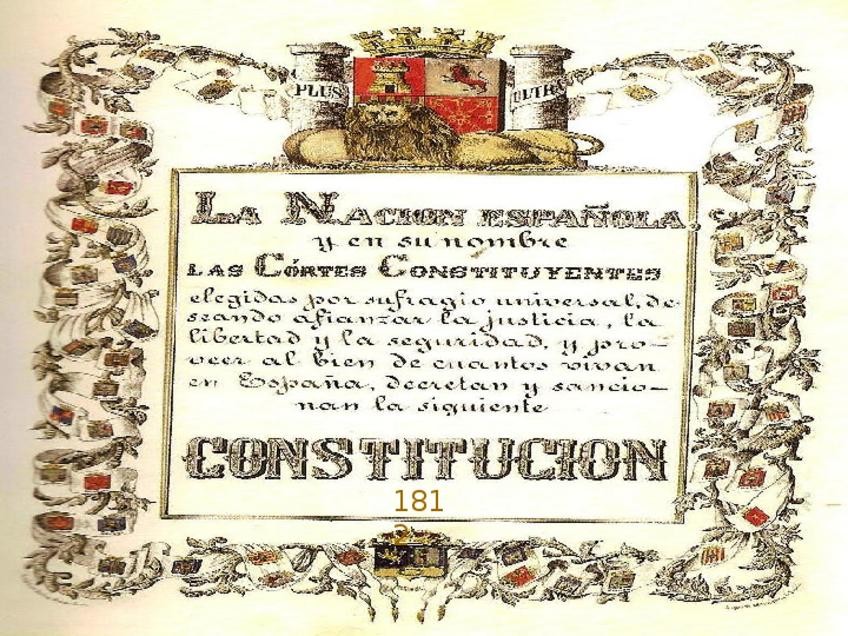 PLUS ULTRA
LA NACION ESPAÑOLA,
y en su nombre
LAS CÓRTES CONSTITUYENTES
elegidas por sufragio universal, de-
seando afianzar la justicia, la
libertad y la seguridad, y pro-
veer al bien de cuantos vivan
en España, decretan y sancio-
nan la siguiente
CONSTITUCION
181